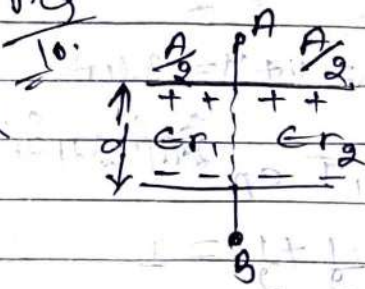 10.
A/2 A A/2
+ + + +
d ∈r₁ ∈r₂
- - - -
B